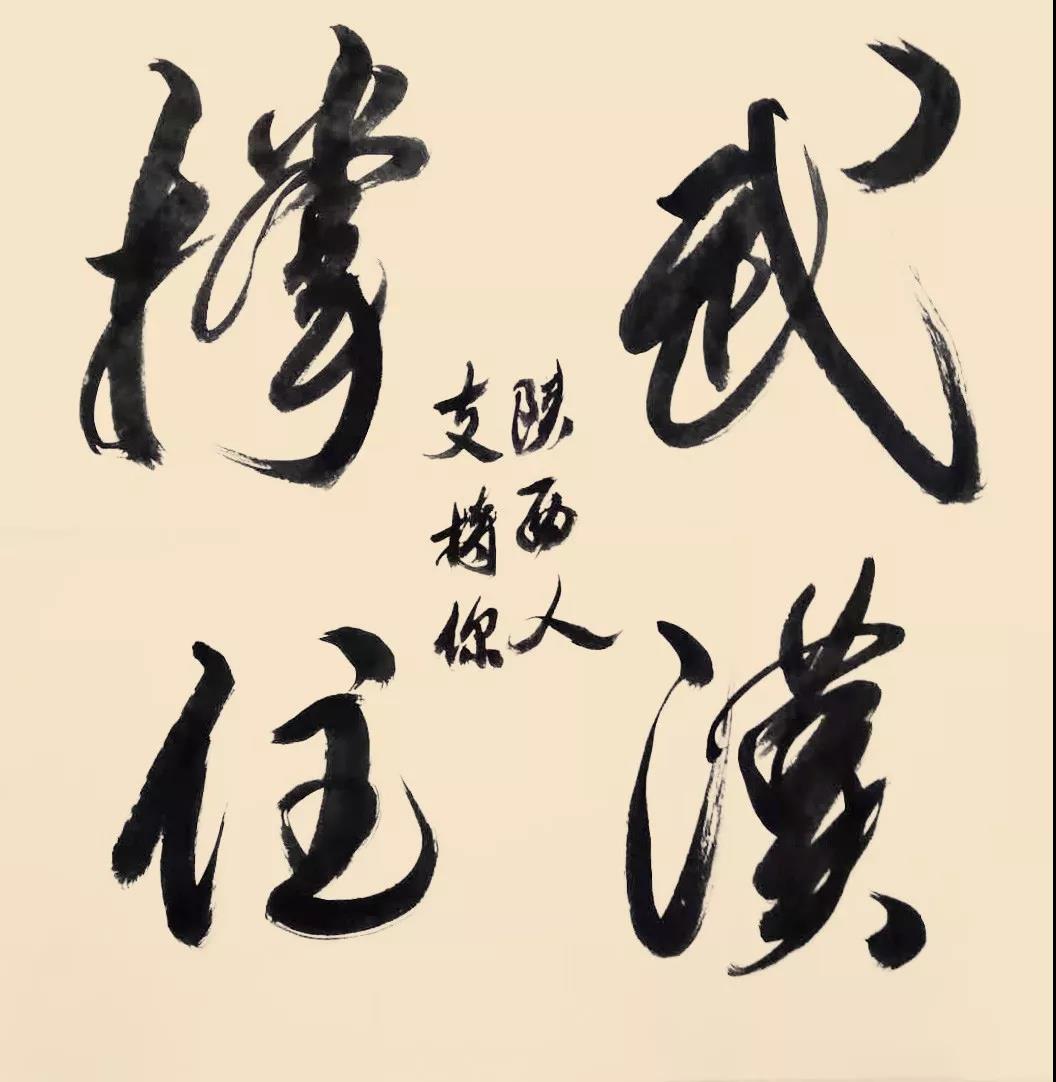 武漢
撐住
陕西人
支撐你